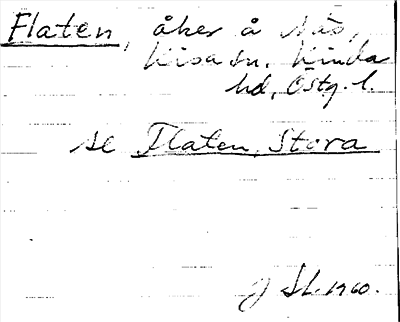 Flaten, åker å Näs,
Kisa sn. Kinda
hd, Östg. l.
se Flaten, Stora
J Sh. 1960.